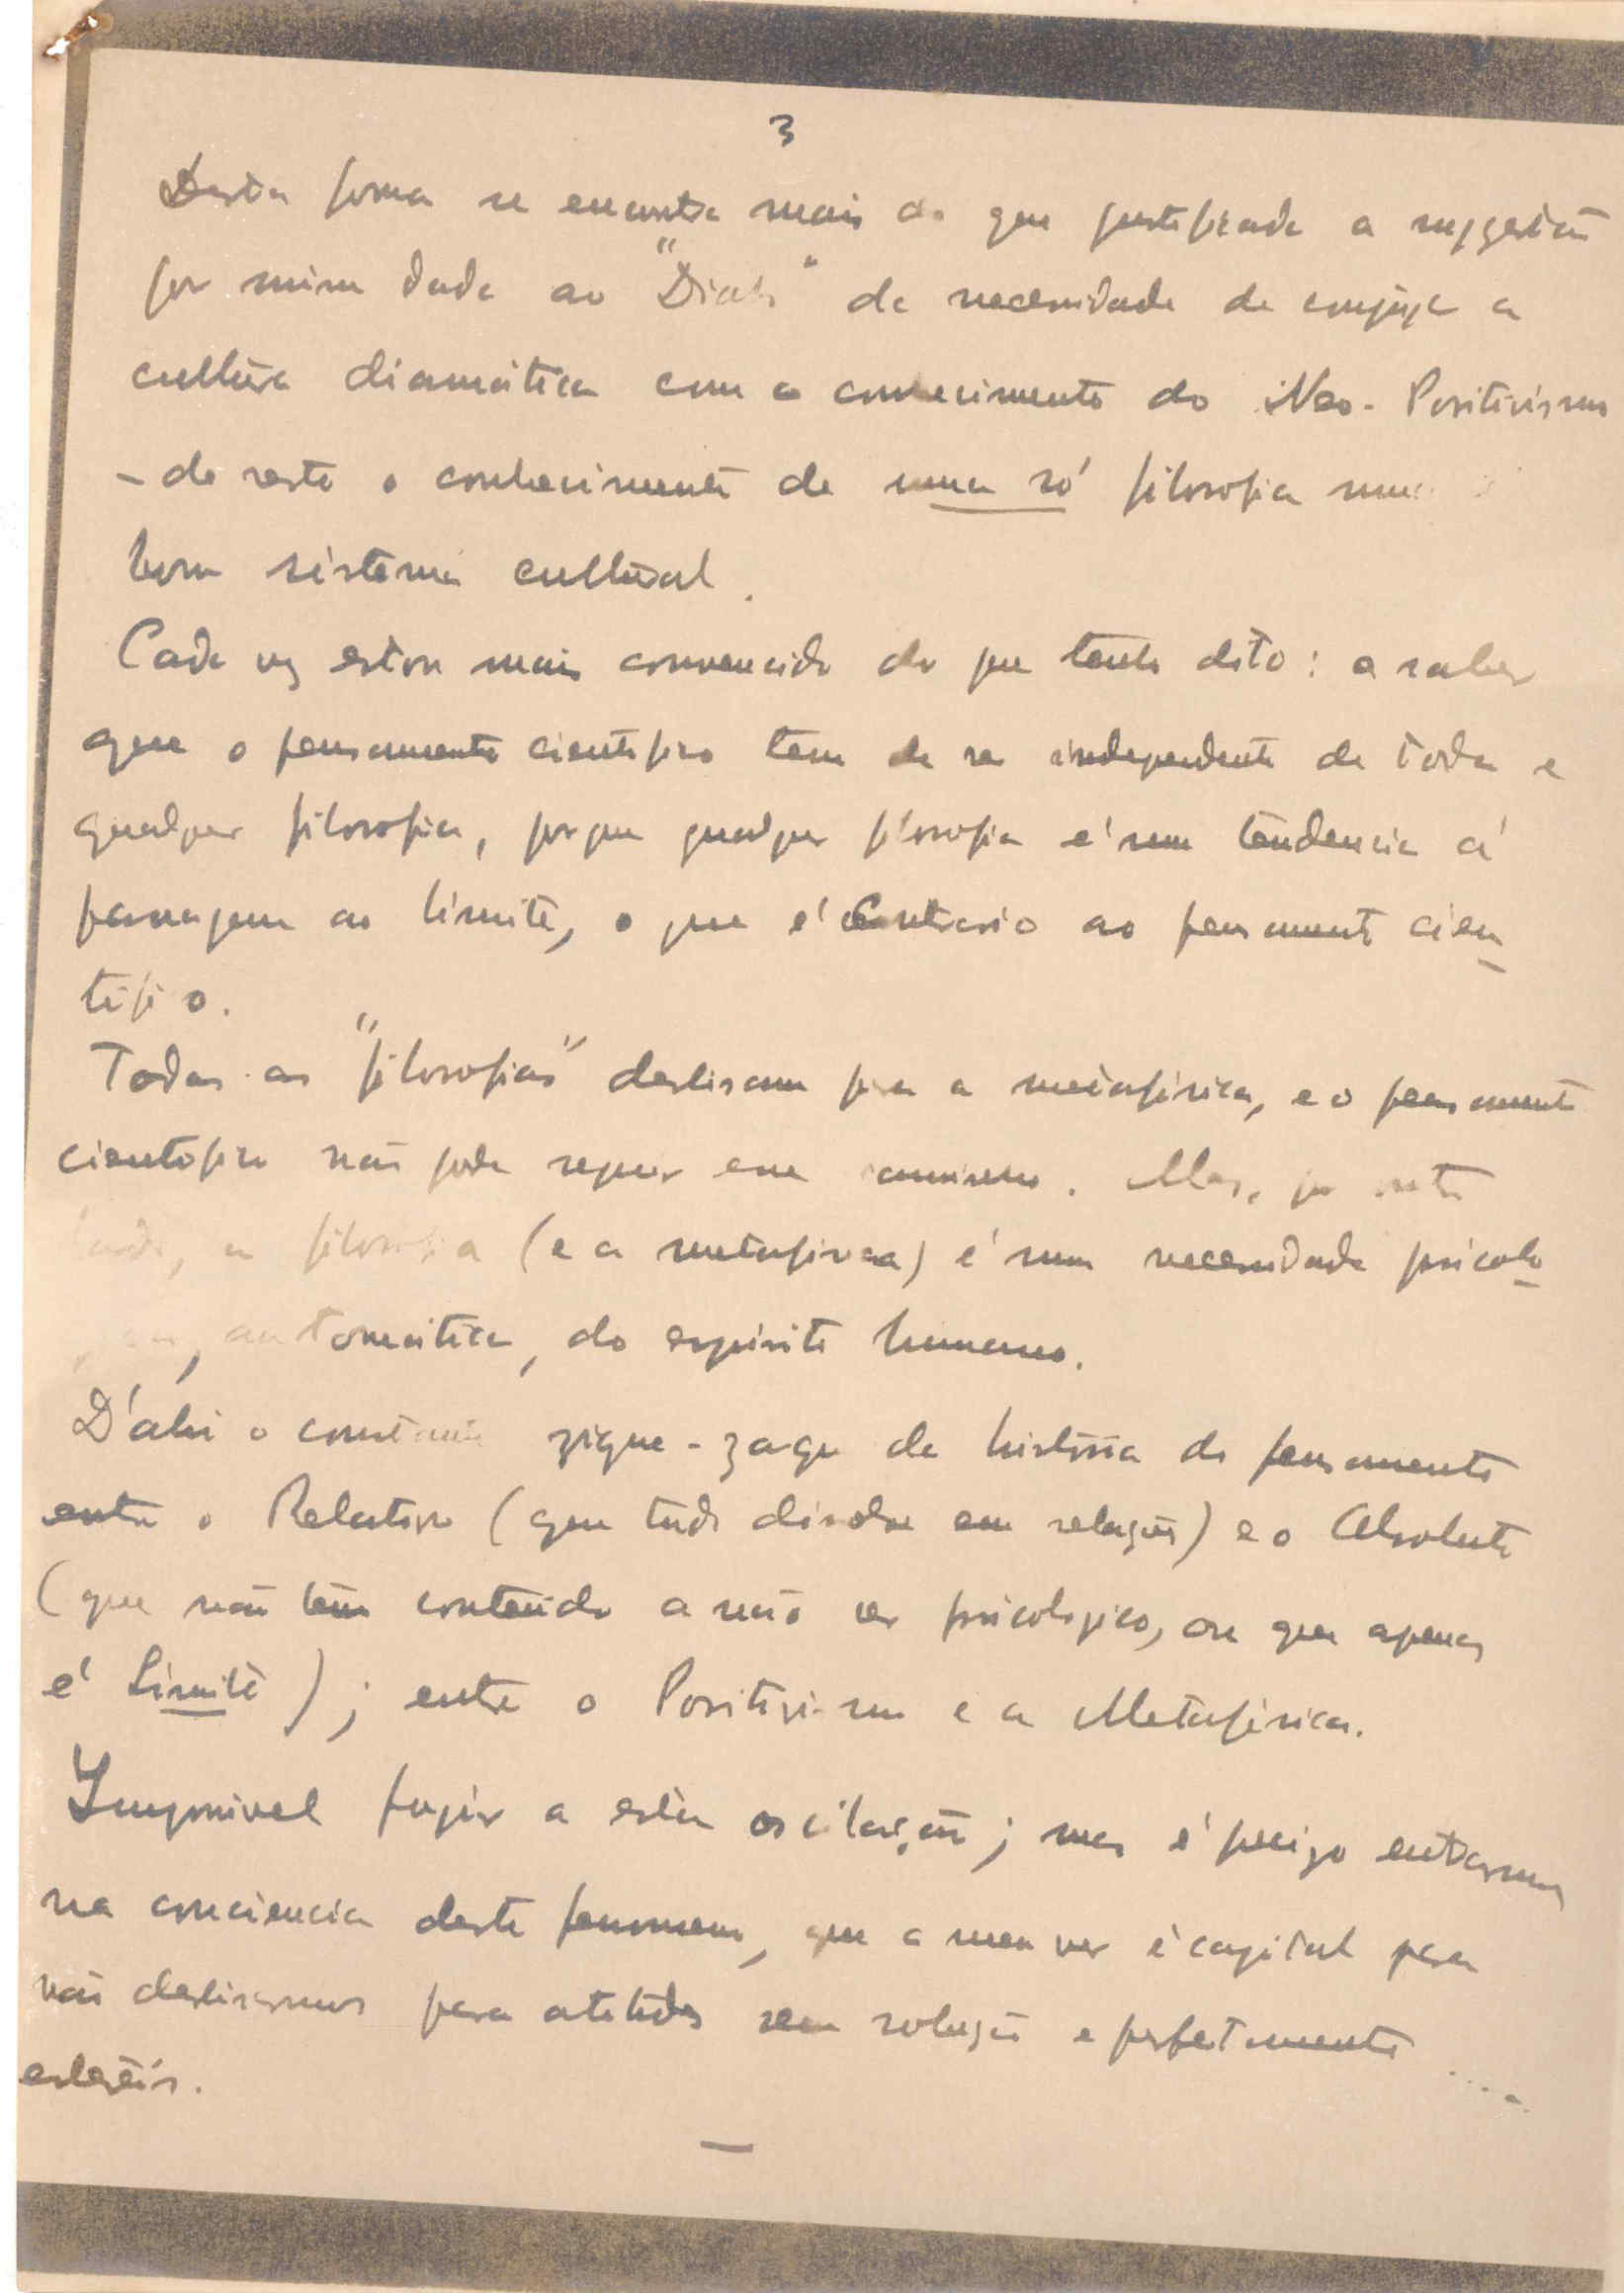 3
Desta forma se encontra mais do que justificada a suggestão
por mim dada ao "Diabo" da necessidade de conjugar a
cultura diamática com o conhecimento do Neo-Positivismo
- de resto o conhecimento de uma só filosofia nunca é
bom sistema cultural.
Cada vez estou mais convencido do que tenho dito: a saber
que o pensamento cientifico tem de ser independente de toda e
qualquer filosofia, porque qualquer filosofia é uma tendencia á
passagem ao limite, o que é contrario ao pensamento cien-
tifico.
Todas as "filosofias" deslisam para a metafisica, e o pensamento
cientifico não pode seguir esse caminho. Mas, por outro
lado, a filosofia (e a metafisica) é uma necessidade psicolo-
gica, automática, do espirito humano.
D'ahi o constante zigue-zague da história do pensamento
entre o Relativo (que tudo dissolve em relação) e o Absoluto
(que não tem conteúdo a não ser psicologico, ou que apenas
é Limite); entre o Positivismo e a Metafísica.
Impossivel fugir a esta oscilação; mas é preciso entrarmos
na consciencia deste fenomeno, que a meu ver é capital para
não deslisarmos para atitudes sem solução e perfeitamente
estereis.